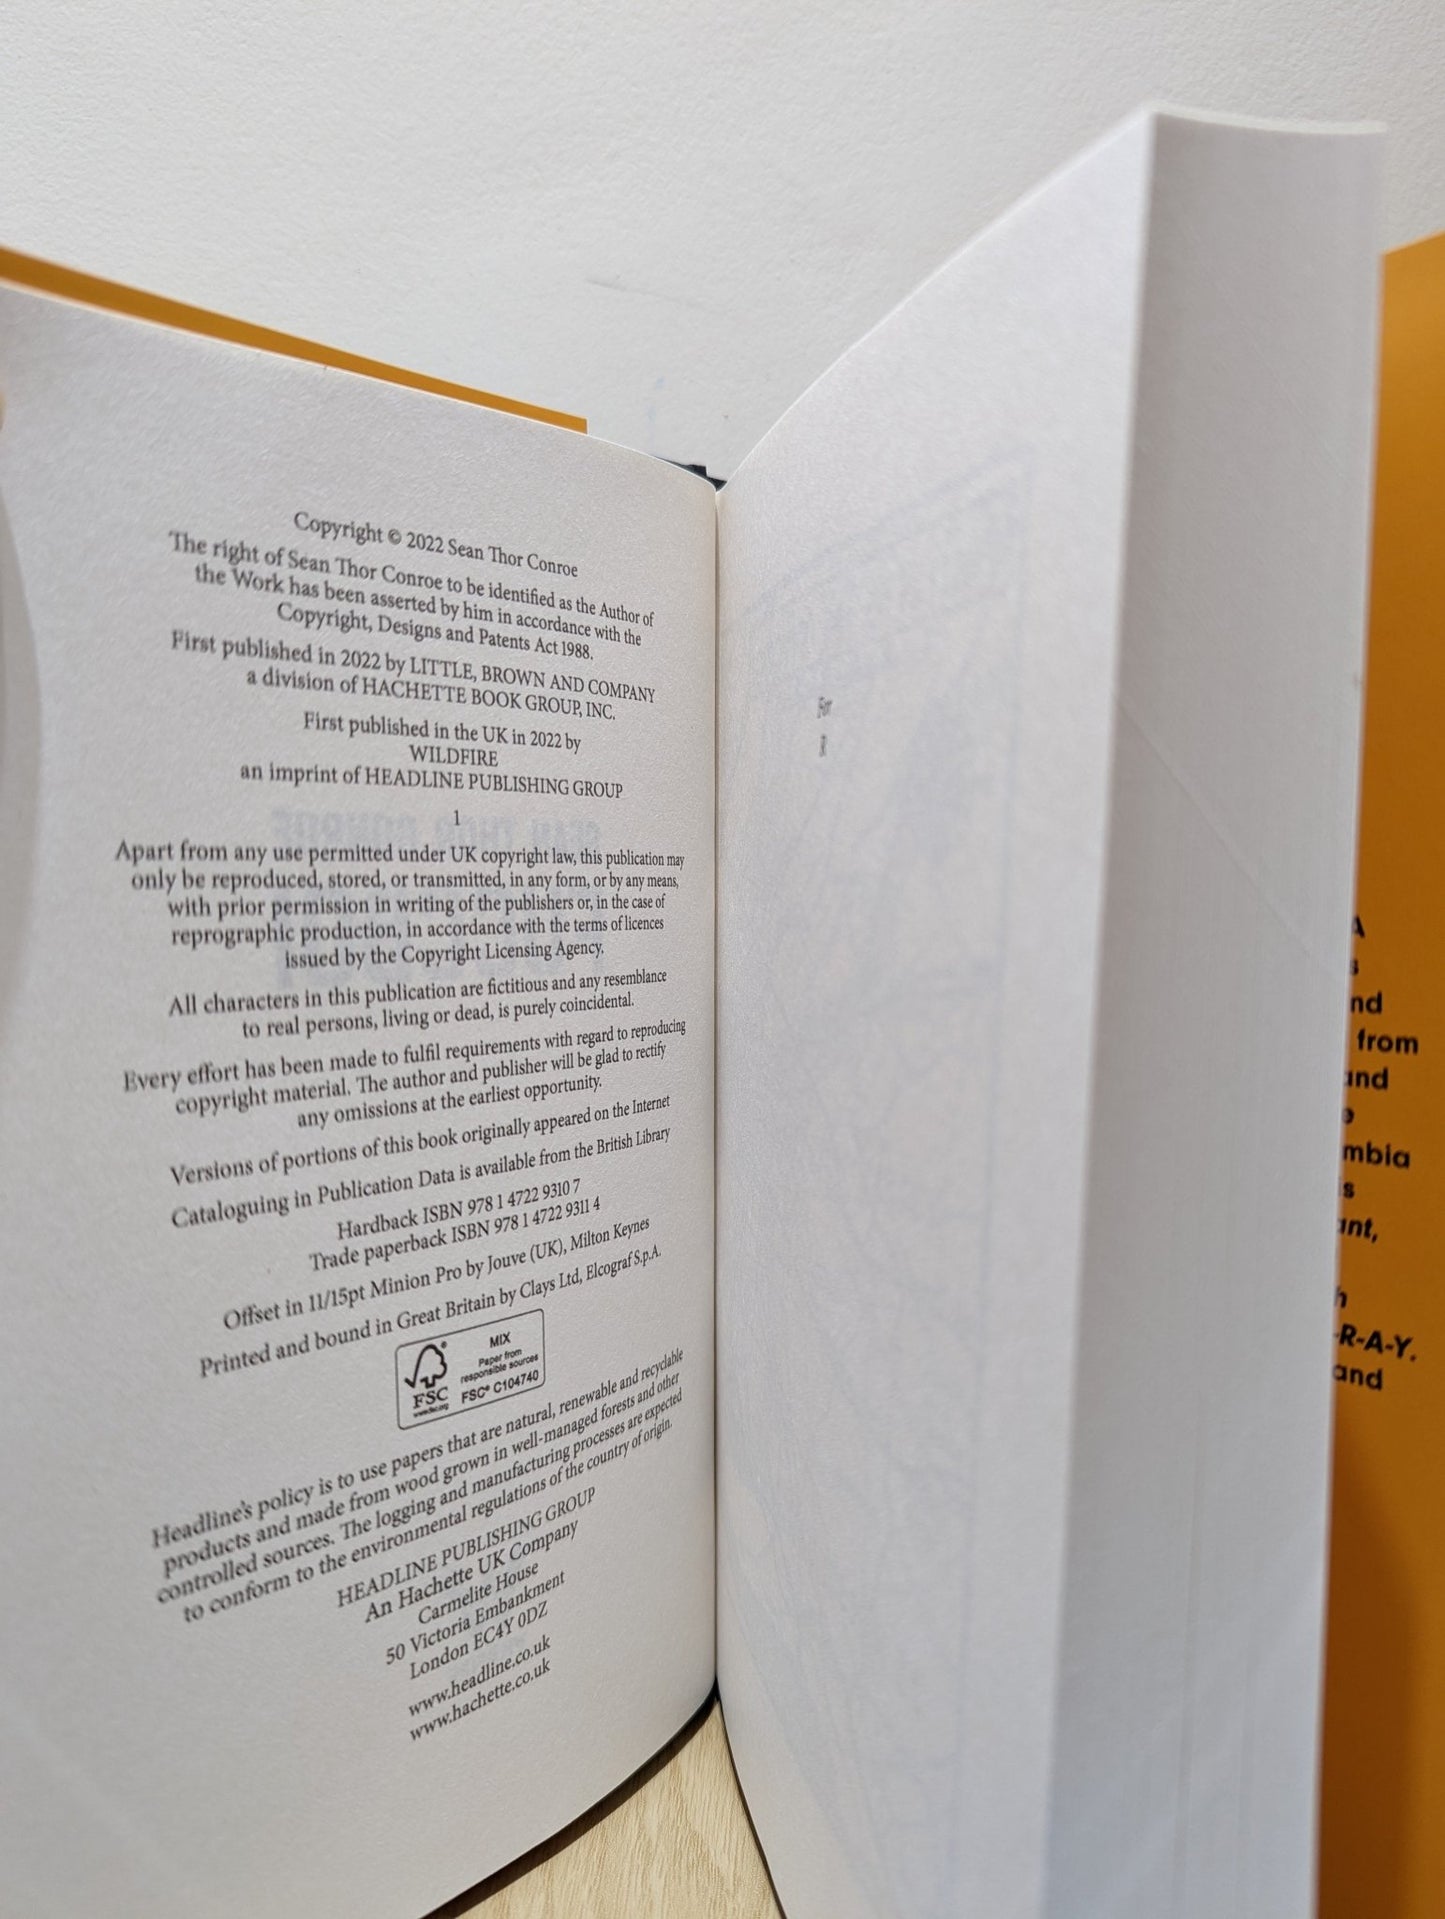 Copyright © 2022 Sean Thor Conroe
The right of Sean Thor Conroe to be identified as the Author of
the Work has been asserted by him in accordance with the
Copyright, Designs and Patents Act 1988.
First published in 2022 by LITTLE, BROWN AND COMPANY
a division of HACHETTE BOOK GROUP, INC.
First published in the UK in 2022 by
WILDFIRE
an imprint of HEADLINE PUBLISHING GROUP
1
Apart from any use permitted under UK copyright law, this publication may
only be reproduced, stored, or transmitted, in any form, or by any means,
with prior permission in writing of the publishers or, in the case of
reprographic production, in accordance with the terms of licences
issued by the Copyright Licensing Agency.
All characters in this publication are fictitious and any resemblance
to real persons, living or dead, is purely coincidental.
Every effort has been made to fulfil requirements with regard to reproducing
copyright material. The author and publisher will be glad to rectify
any omissions at the earliest opportunity.
Versions of portions of this book originally appeared on the Internet
Cataloguing in Publication Data is available from the British Library
Hardback ISBN 978 1 4722 9310 7
Trade paperback ISBN 978 1 4722 9311 4
Offset in 11/15pt Minion Pro by Jouve (UK), Milton Keynes
Printed and bound in Great Britain by Clays Ltd, Elcograf S.p.A.
MIX
Paper from
responsible sources
FSC® C104740
FSC
www.fsc.org
Headline's policy is to use papers that are natural, renewable and recyclable
products and made from wood grown in well-managed forests and other
controlled sources. The logging and manufacturing processes are expected
to conform to the environmental regulations of the country of origin.
HEADLINE PUBLISHING GROUP
An Hachette UK Company
Carmelite House
50 Victoria Embankment
London EC4Y 0DZ
www.headline.co.uk
www.hachette.co.uk
For
R
A
s
nd
from
and
e
mbia
s
ant,
h
-R-A-Y.
and